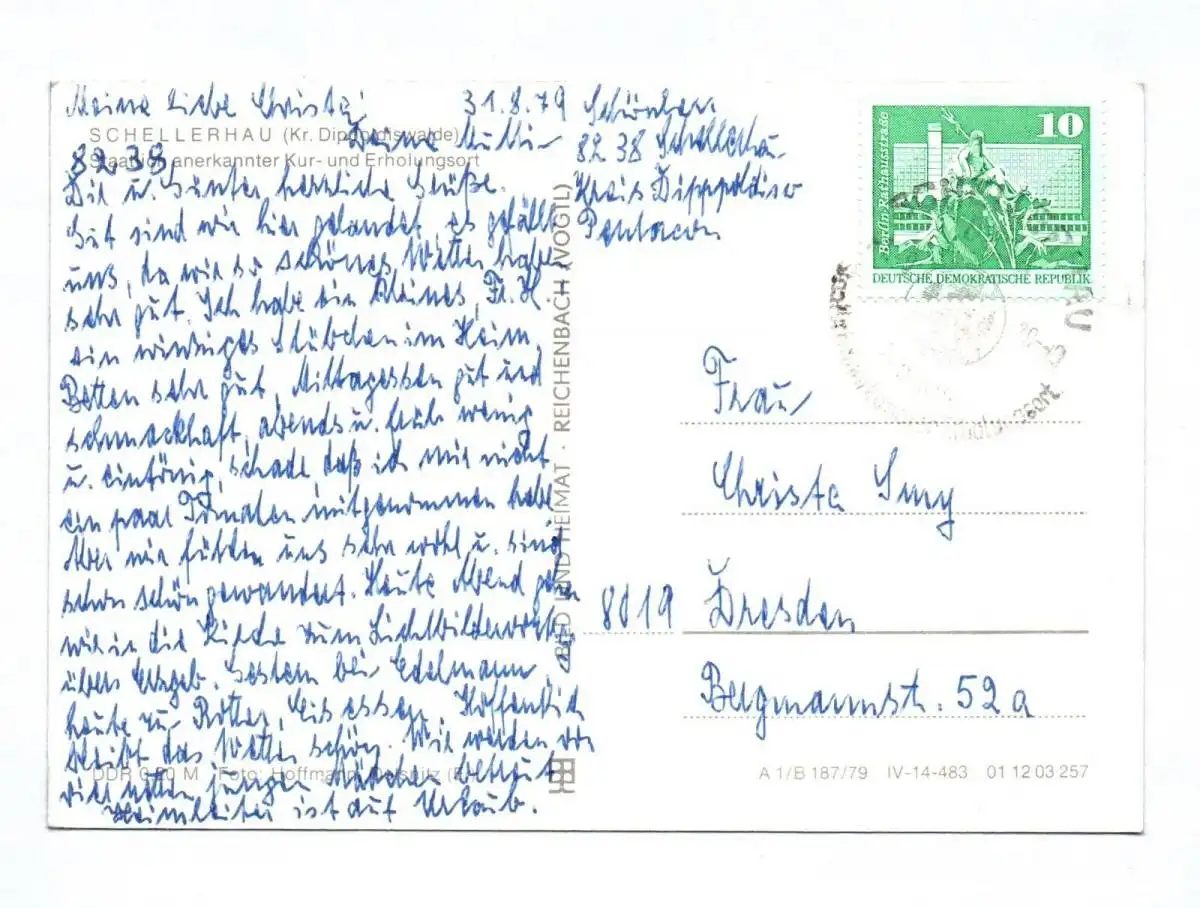 Meine liebe Christa!
31.8.79
SCHELLERHAU (Kr. Dippoldiswalde)
Deine Mutti
8238
Staatlich anerkannter Kur- und Erholungsort
Dir u. Günter herzliche Grüße.
Gut sind wir hier gelandet, es gefällt
uns, da wir so schönes Wetter haben
sehr gut. Ich habe ein kleines, Fr. H.
ein winziges Stübchen im Heim,
Betten sehr gut, Mittagessen gut und
schmackhaft, abends u. früh wenig
u. eintönig, schade, daß ich mir nicht
ein paar Tomaten mitgenommen habe
Aber wir fühlen uns sehr wohl u. sind
schon schön gewandert. Heute Abend gehen
wir in die Kirche zum Lichtbildervortr.
übers Erzgeb. Gestern bei Edelmann,
heute zu Rotter, Eis essen. Hoffentlich
bleibt das Wetter schön. Wir werden von
DDR 0,20 M Foto: Hoffmann, Oelsnitz
viel netten jungen Mädchen betreut
Heimleiter ist auf Urlaub.
BILD UND HEIMAT · REICHENBACH (VOGTL)
8238 Schellerhau
Kreis Dippoldisw
Pentacon
10
Berlin·Rathausstraße
DEUTSCHE DEMOKRATISCHE REPUBLIK
Frau
Christa
8019 Dresden
Bergmannstr. 52a
A 1/B 187/79 IV-14-483 01 12 03 257